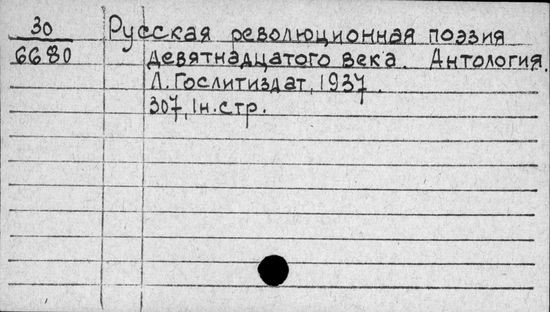 30 Русская революционная поэзия
6680 девятнадцатого века. Антология.
Л. Гослитиздат, 1937.
307, 1н. стр.